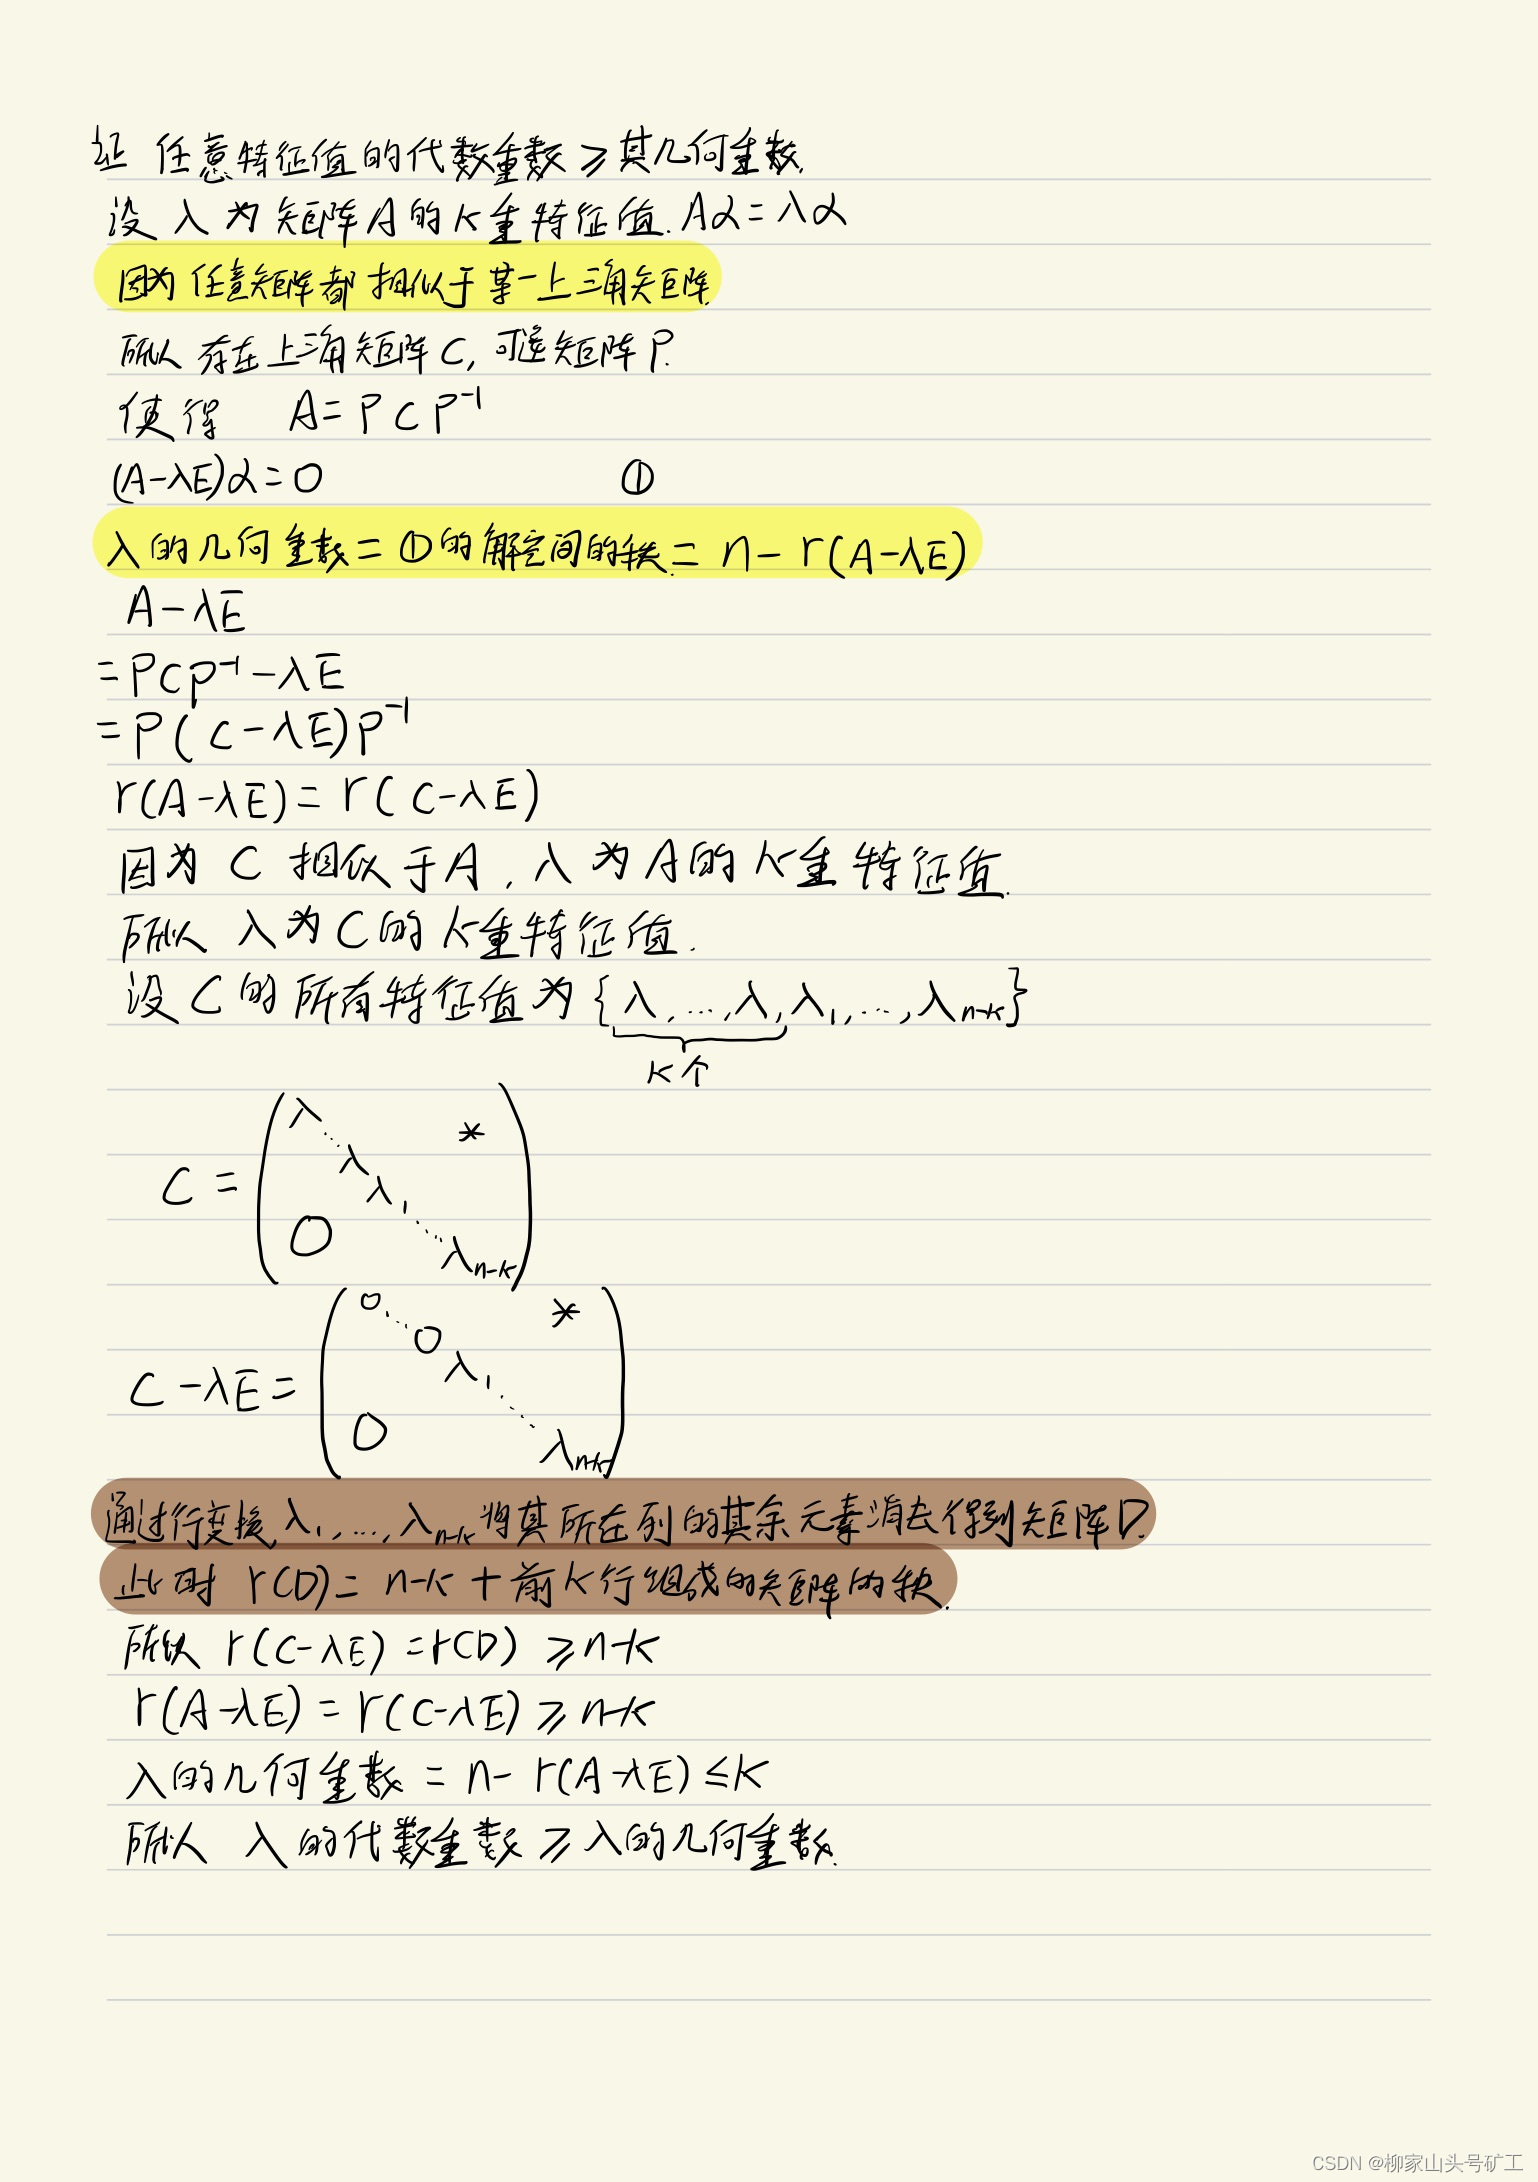 证 任意特征值的代数重数≥其几何重数.
设 λ 为 矩阵A的K重特征值. Aα=λα
因为 任意矩阵都 相似于 某一上三角矩阵.
所以 存在上三角矩阵C, 可逆矩阵P.
使得 A=PCP⁻¹
(A-λE)α=0 ①
λ的几何重数=①的解空间的秩.= n- r(A-λE)
A-λE
=PCP⁻¹-λE
=P(C-λE)P⁻¹
r(A-λE)=r(C-λE)
因为 C 相似于A, λ为A的K重 特征值.
所以 λ为C的K重特征值.
设C的所有特征值为{λ,…,λ,λ₁,…,λn-k}
K个
λ
⋱ *
λ
C= λ₁
0 ⋱
λn-k
0 *
⋱
0
λ₁
C-λE= ⋱
0
λn-k
通过行变换,λ₁,…,λn-k将其所在列的其余元素消去得到矩阵D.
此时 r(D)= n-k+前K行组成的矩阵的秩.
所以 r(C-λE)=r(D)≥n-k
r(A-λE)=r(C-λE)≥n-k
λ的几何重数=n-r(A-λE)≤K
所以 λ的代数重数≥λ的几何重数.
CSDN @柳家山头号矿工